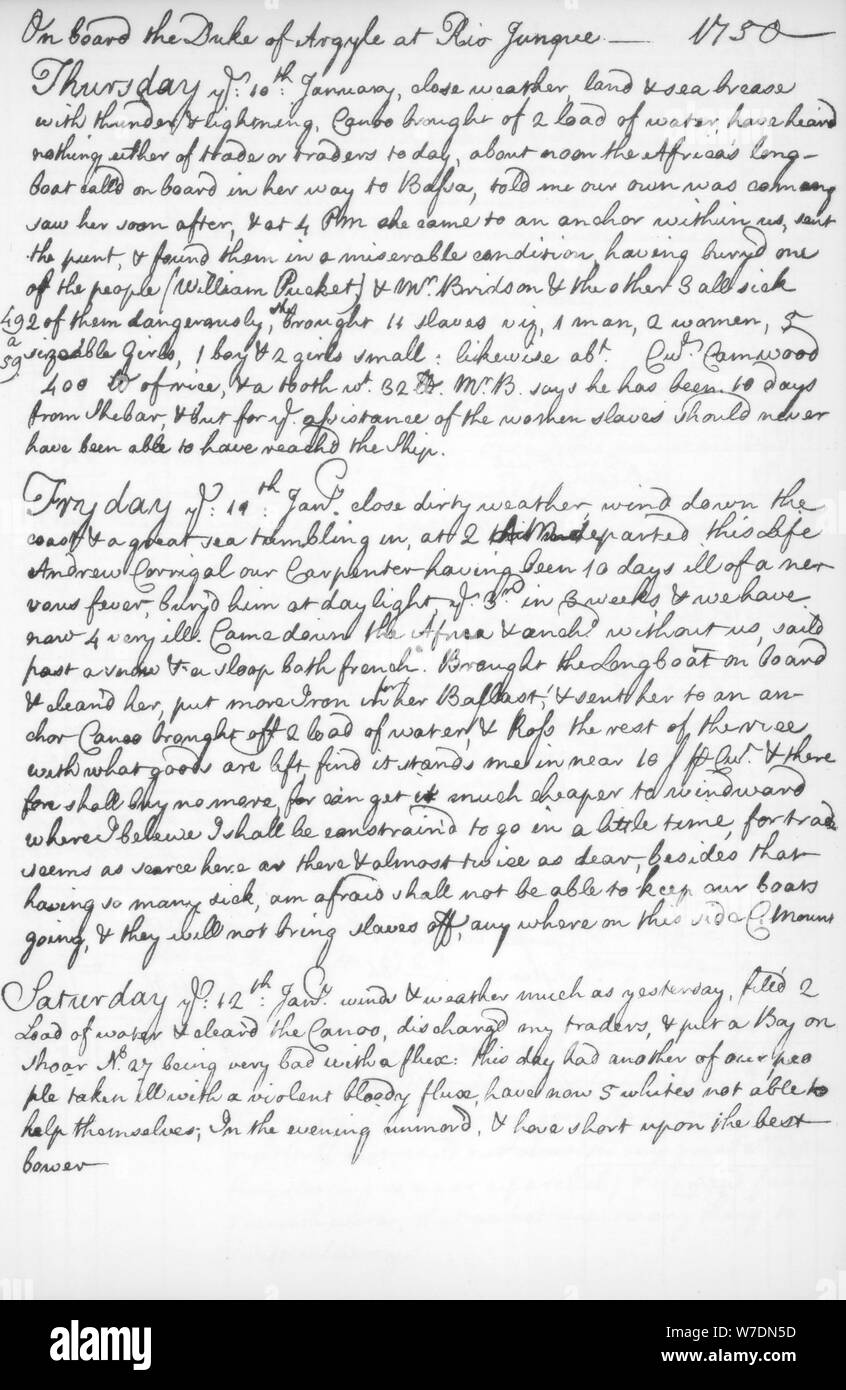 On board the Duke of Argyle at Rio Junque — 1750 —
Thursday yᵉ: 10ᵗʰ: January, close weather, land & sea brease
with thunder & lightning, Canoo brought of 2 load of water, have heard
nothing either of trade or traders to day, about noon the Africa's long-
boat calld on board in her way to Bassa, told me our own was coming
saw her soon after, & at 4 PM she came to an anchor within us, sent
the punt, & found them in a miserable condition, having buryd one
of the people (William Pucket) & Mʳ. Bridson & the other 3 all sick
49 2 of them dangerously, she brought 11 slaves viz, 1 man, 2 women, 5
a
59 sizeable Girls, 1 boy & 2 girls small: likewise abᵗ. Cwᵗ. Camwood
400 lb of rice, & a tooth wᵗ. 32 lb. Mʳ B. says he has been 10 days
from Shebar, & but for yᵉ assistance of the women slaves should never
have been able to have reachd the Ship.
Fryday yᵉ: 11ᵗʰ Janʸ. close dirty weather, wind down the
coast & a great sea tumbling in, at 2 departed this Life
Andrew Corrigal our Carpenter having been 10 days ill of a ner
vous fever, buryd him at daylight, yᵉ 3ʳᵈ in 3 weeks, & we have
now 4 very ill. Came down the Africa & anchᵈ without us, saild
past a snow & a sloop both french. Brought the Longboat on board
& cleand her, put more Iron in for her Ballast, & sent her to an an-
chor Canoo brought off 2 load of water, & Ross the rest of the rice
with what goods are left, find it stands me in near 10/ ⅌ Cwᵗ. & there
fore shall buy no more, for can get it much cheaper to windward
where I beleive I shall be constrain'd to go in a little time, for trade
seems as scarce here as there & almost twice as dear, besides that
having so many sick, am afraid shall not be able to keep our boats
going, & they will not bring slaves off, any where on this side C. Mount
Saturday yᵉ: 12ᵗʰ: Janʸ. wind & weather much as yesterday, fill'd 2
Load of water & cleard the Canoo, dischargd my traders, & put a Boy on
shoar Nº. 27 being very bad with a flux: this day had another of our peo
ple taken ill with a violent bloody flux, have now 5 whites not able to
help themselves; In the evening unmord, & hove short upon the best
bower
alamy
W7DN5D